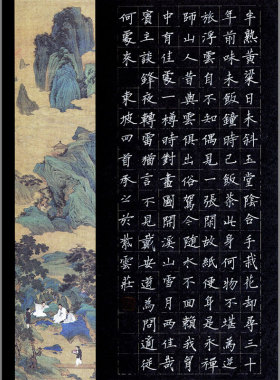 半熟黃粱日未斜玉堂陰合手栽花却尋三十
年前味未飯鐘時已飯茶此身何物不堪為逆
旅浮雲自不知偶見一張閑故紙便疑身是永禪
師山人昔與雲俱出俗駕今隨水不回賴我胸
中有佳處一樽時對畫圖開溪山雪月兩佳哉
賓主談鋒夜轉雷猶言不見戴安道為問適從
何處來 東坡四首 承公於紫雲莊